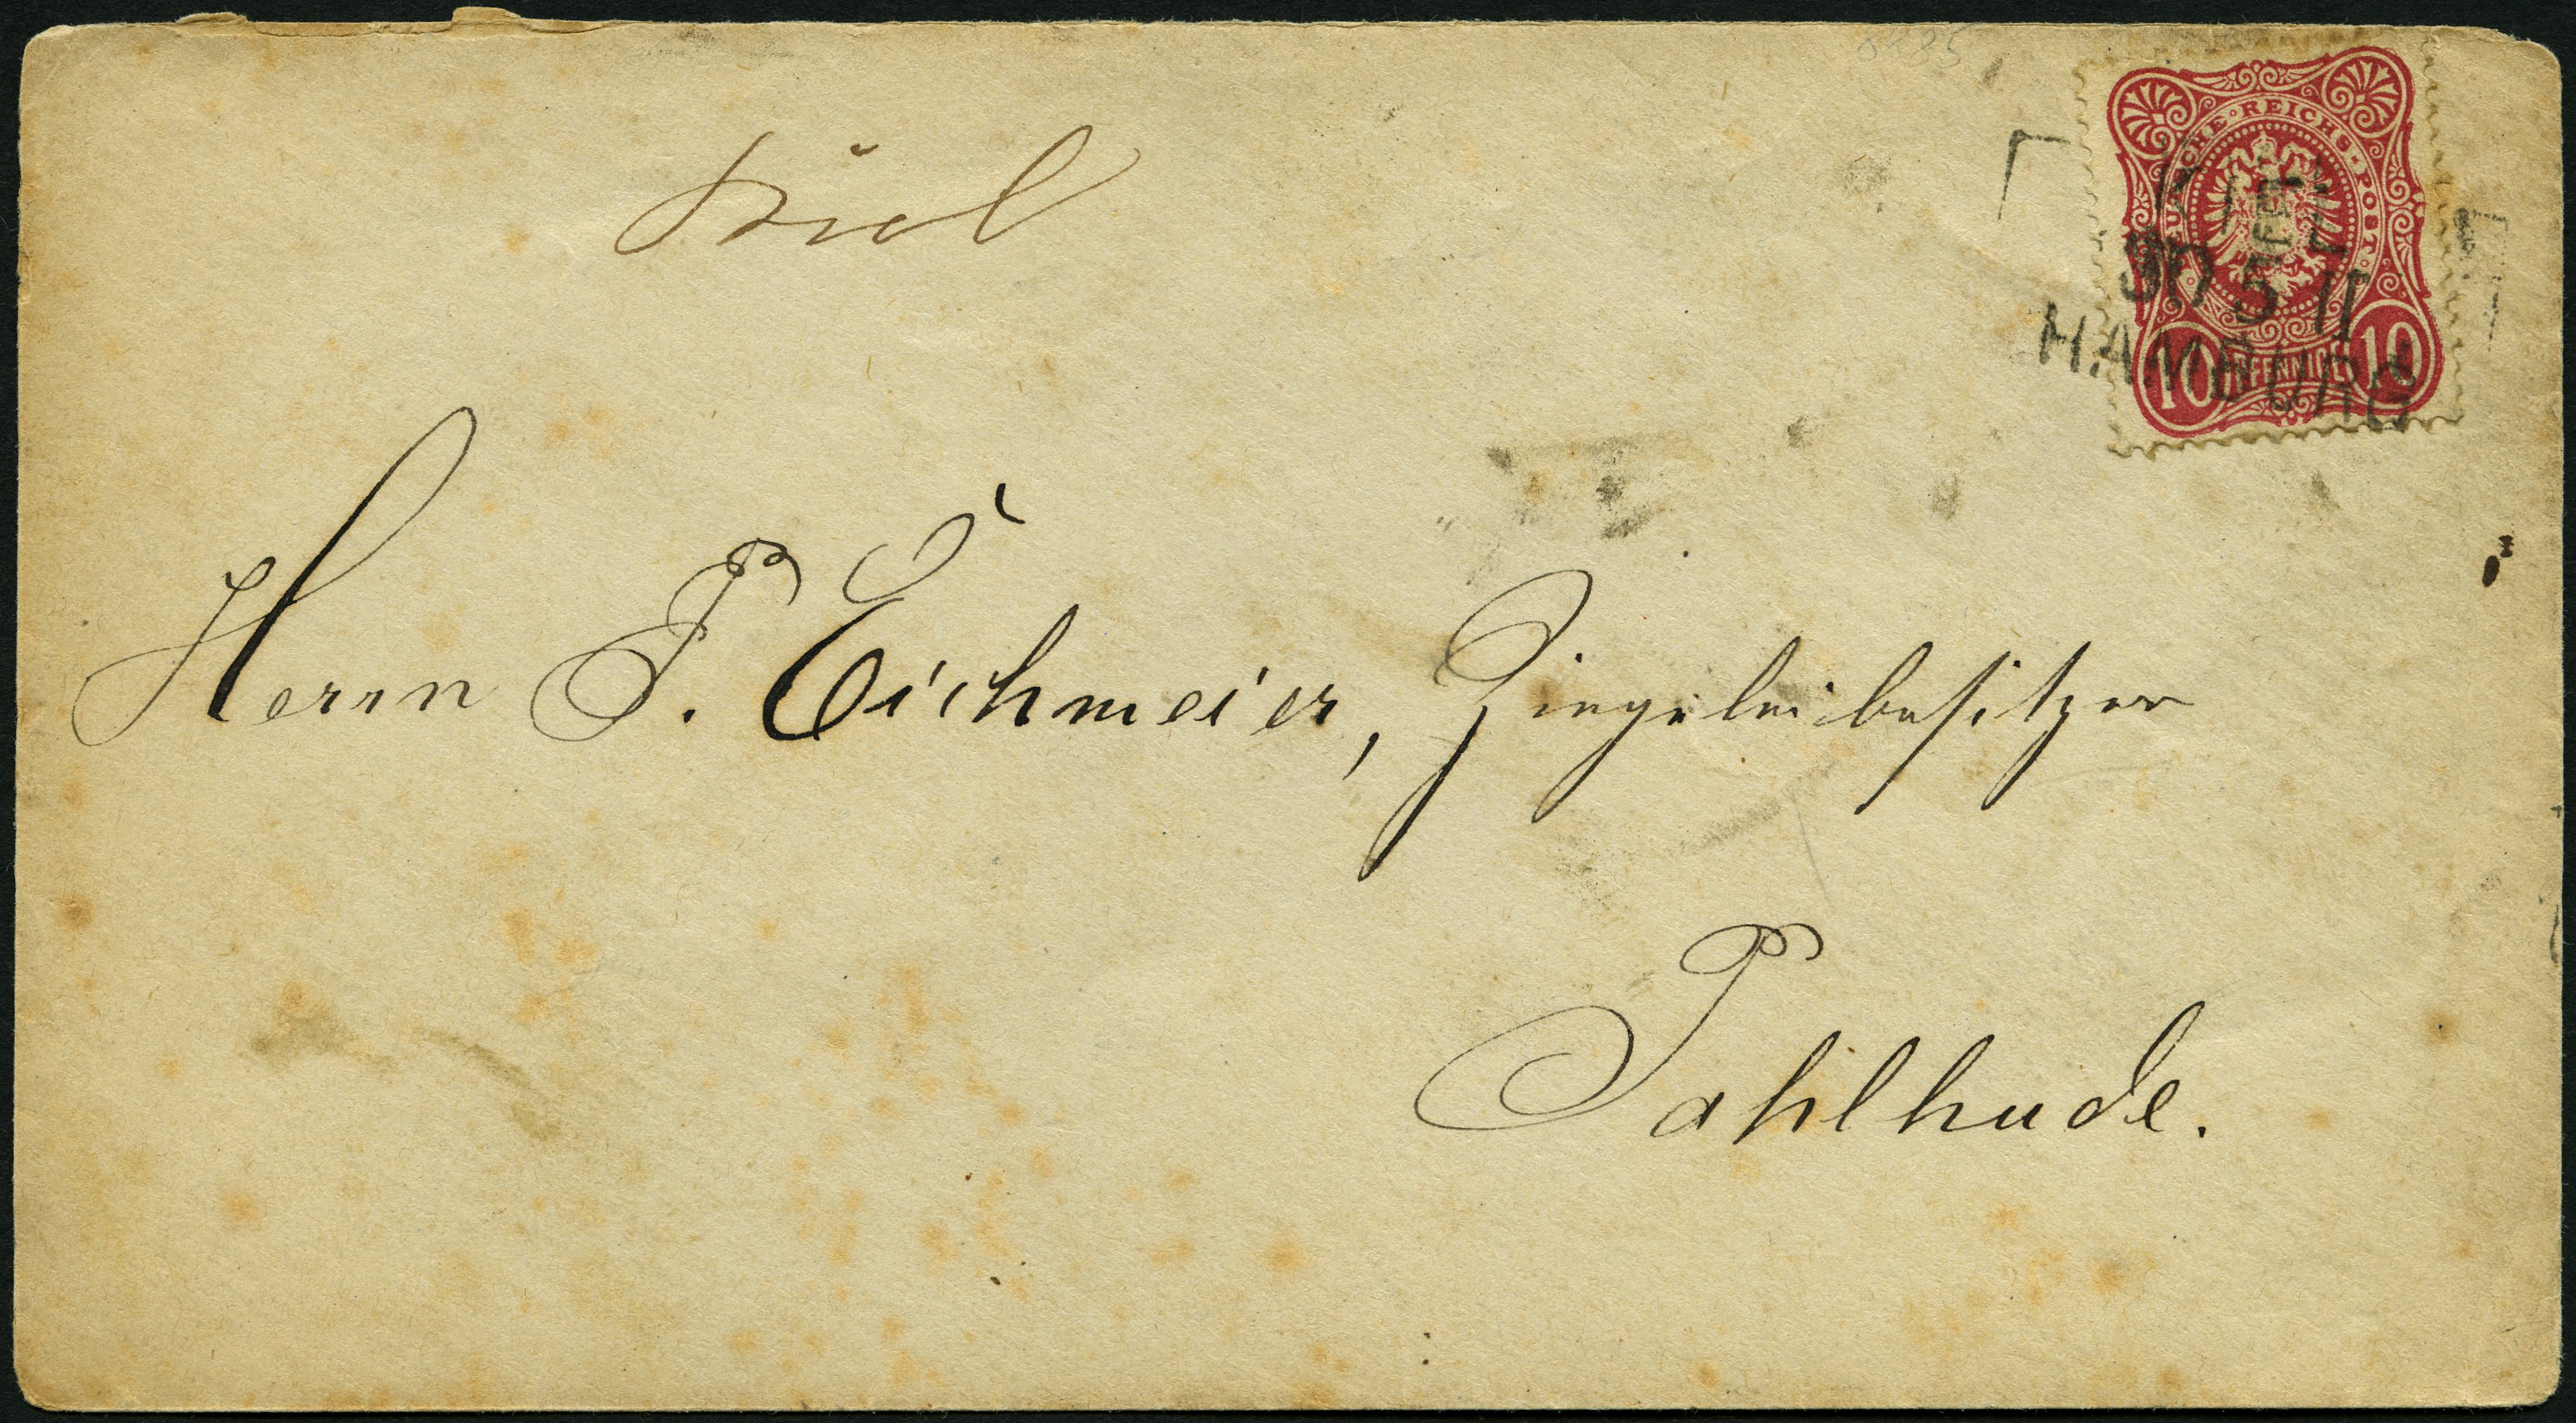 Kiel
DEUTSCHE·REICHS-POST·
10 PFENNIG 10
30 5 II
HAMBURG
Herrn P. Eichmeier, Ziegeleibesitzer
Pahlhude.